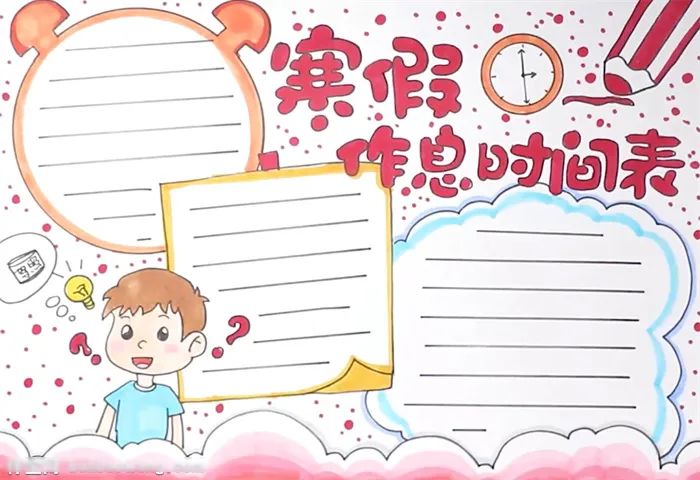 寒假
作息时间表